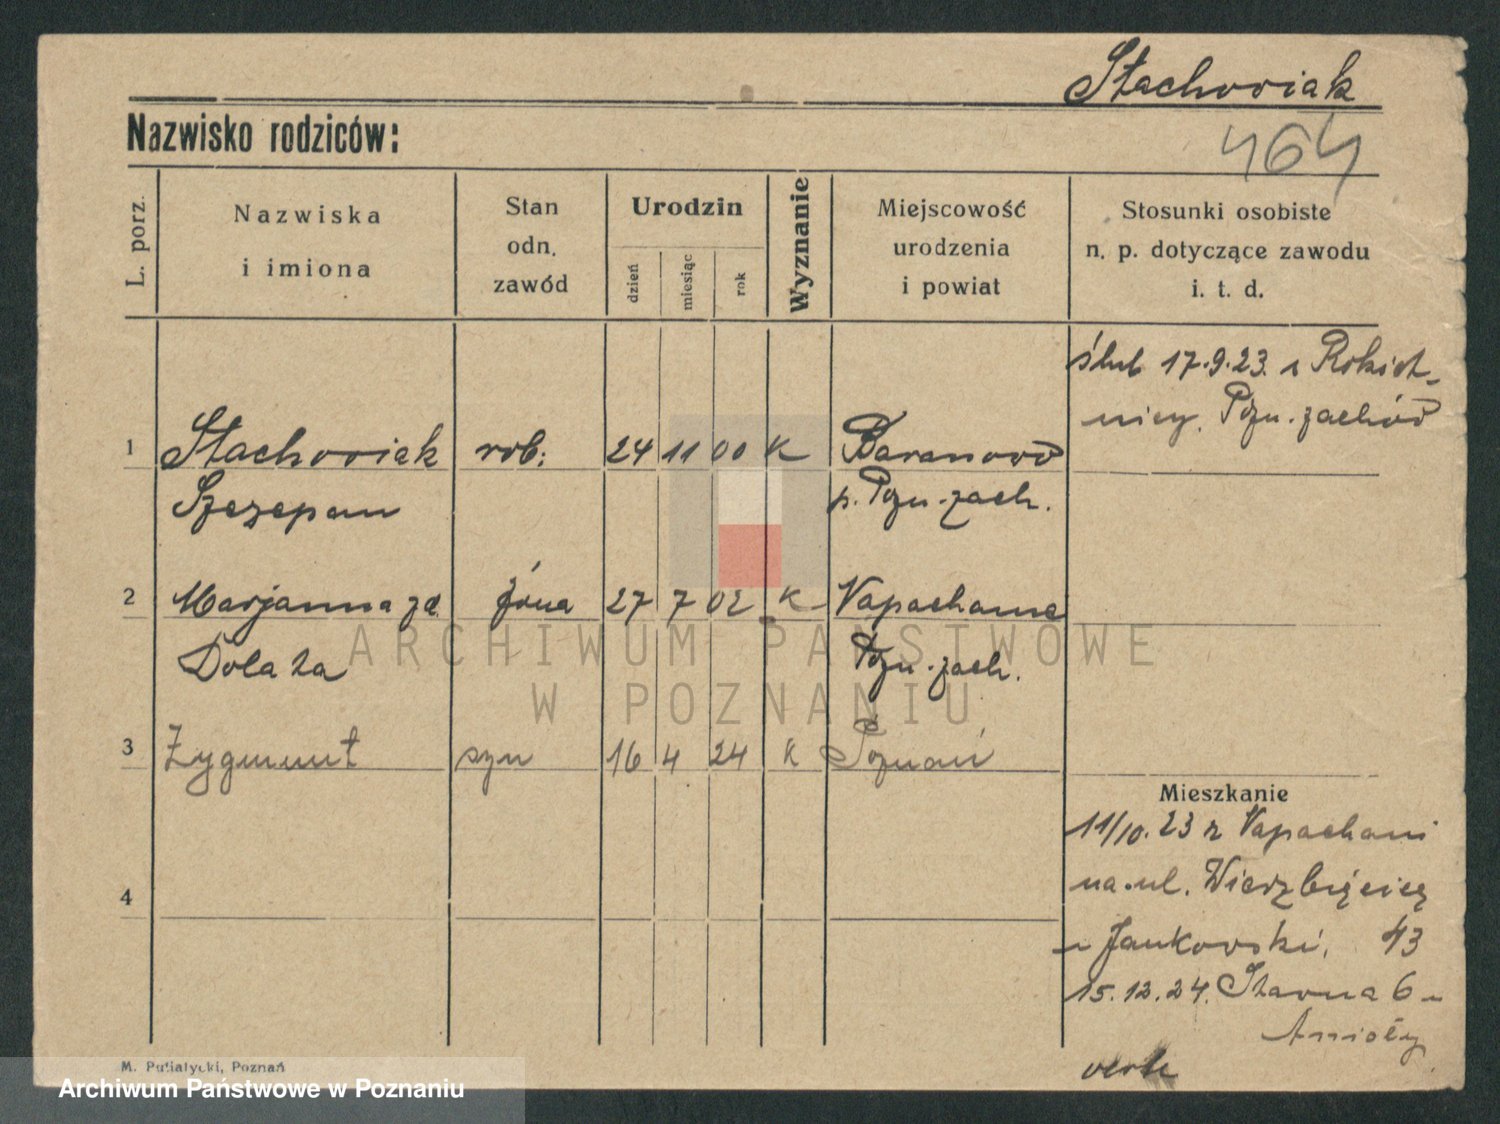 Stachoviak
Nazwisko rodziców:
464
L. porz.
Nazwiska
i imiona
Stan
odn.
zawód
Urodzin
dzień
miesiąc
rok
Wyznanie
Miejscowość
urodzenia
i powiat
Stosunki osobiste
n. p. dotyczące zawodu
i. t. d.
ślub 17.9.23. Rokiet-
nicy. Pozn. zachód
1 Stachoviak rob: 24 11 00 K Baranovo
Szczepan p. Pozn. zach.
2 Marjanna zd. żona 27 7 02 K Napachanie
Dolata Pozn. zach.
3 Zygmunt syn 16 4 24 K Poznań
Mieszkanie
11/10. 23 z Napachani
4
na ul. Wierzbięcice
u Jankovski, 43
15.12.24. 6 u
Anioły
verte
M. Putiatycki, Poznań
ARCHIWUM PAŃSTWOWE
W POZNANIU
Archiwum Państwowe w Poznaniu